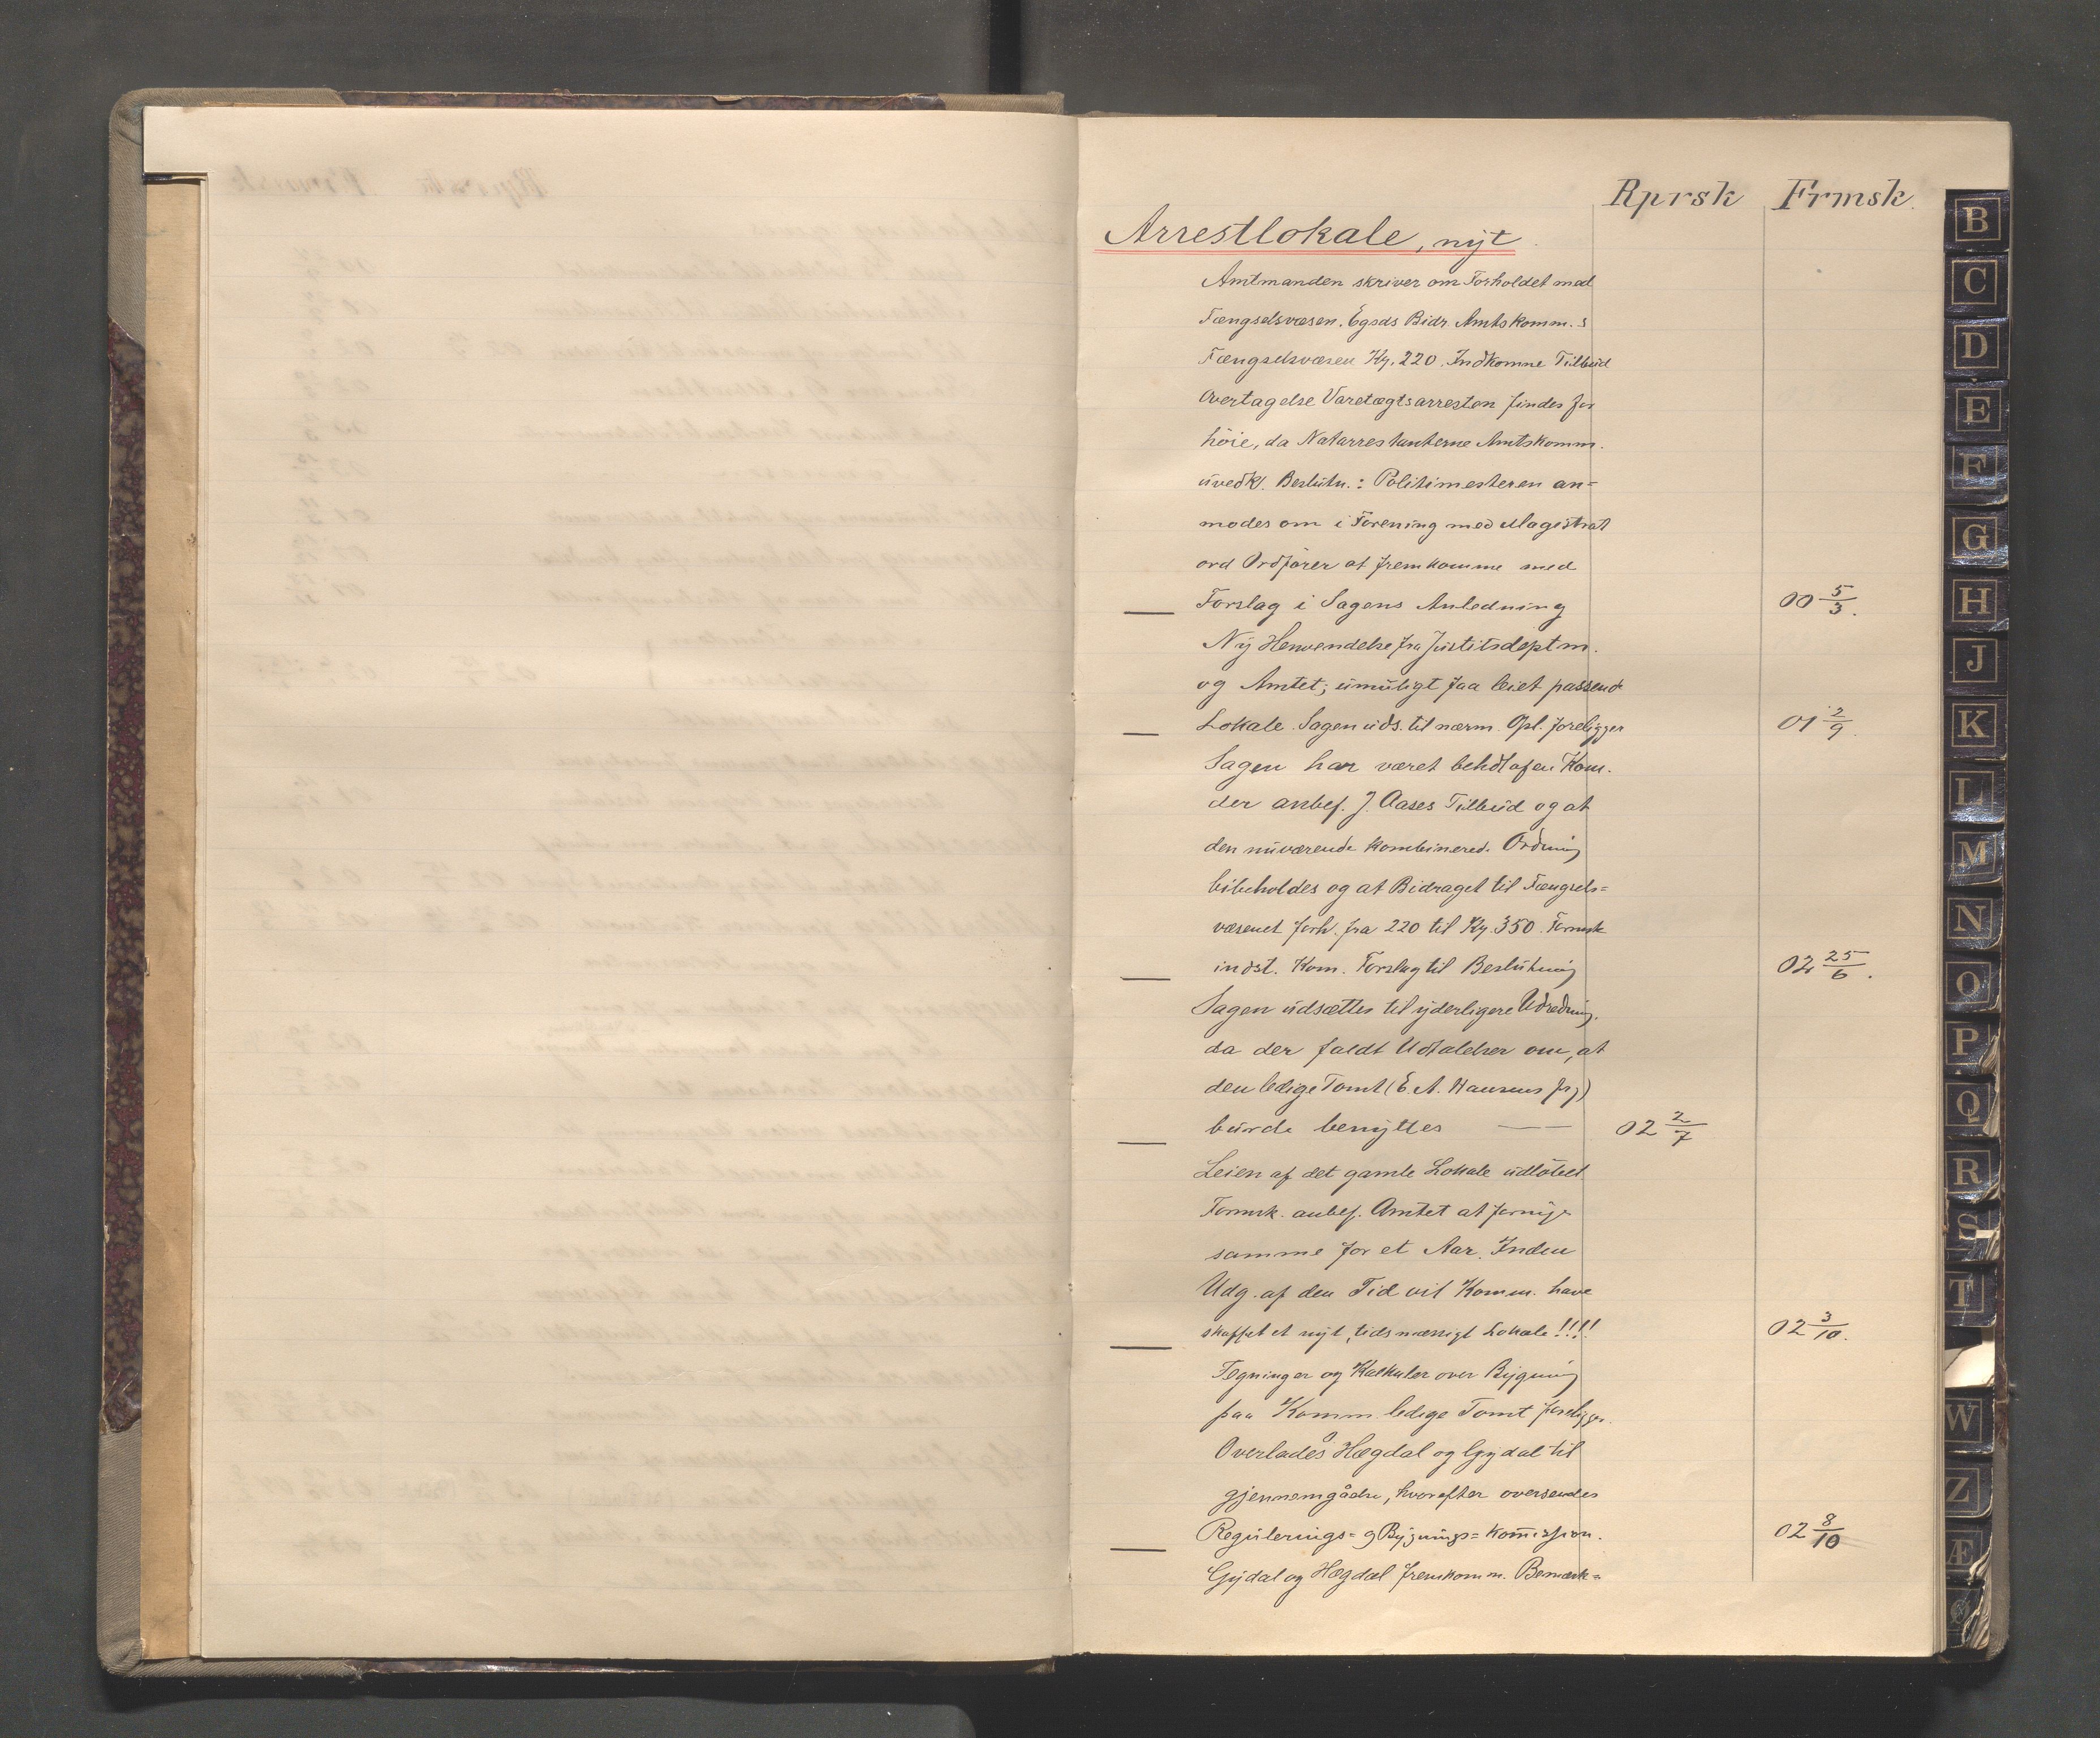 Rprsk Frmsk.
Arrestlokale, nyt.
Amtmanden skriver om Forholdet med
Fængselsvæsen. Egsds Bidr. Amtskomm.s
Fængselsvæsen Kr. 220. Indkomne Tilbud
Overtagelse Varetægtsarresten findes for
höie, da Natarrestanterne Amtskomm.
uvedk. Beslutn.: Politimesteren an=
modes om i Forening med Magistrat
ord Ordförer at fremkomme med
— Forslag i Sagens Anledning 00 5/3.
Ny Henvendelse fra Justitsdeptm.
og Amtet; umuligt faa leiet passende
— Lokale. Sagen uds. til nærm. Opl. foreligger 01 2/9.
Sagen har været behdl af en Kom.
der anbef. J. Aases Tilbud og at
den nuværende kombinered. Ordning
bibeholdes og at Bidraget til Fængsels=
væsenet forh. fra 220 til Kr. 350. Formsk
— indst. Kom. Forslag til Beslutning 02 25/6.
Sagen udsættes til yderligere Udredning.
da der faldt Udtalelser om, at
den ledige Tomt (E. A. Hansens frj)
— burde benyttes —— 02 2/7
Leien af det gamle Lokale udlöbet
Formsk. anbef. Amtet at fornye
samme for et Aar. Inden
Udg. af den Tid vil Komm. have
— skaffet et nyt, tidsmæssigt Lokale!!!! 02 3/10.
Tegninger og Kalkuler over Bygning
paa Komm. ledige Tomt foreligger.
Overlades Hægdal og Gydal til
gjennemgåelse, hvorefter oversendes
— Regulerings= og Bygnings=Kommission. 02 8/10
Gydal og Hægdal fremkomm. Bemærk=
B
C
D
E
F
G
H
J
K
L
M
N
O
P
Q
R
S
T
W
Z
Æ
Ø